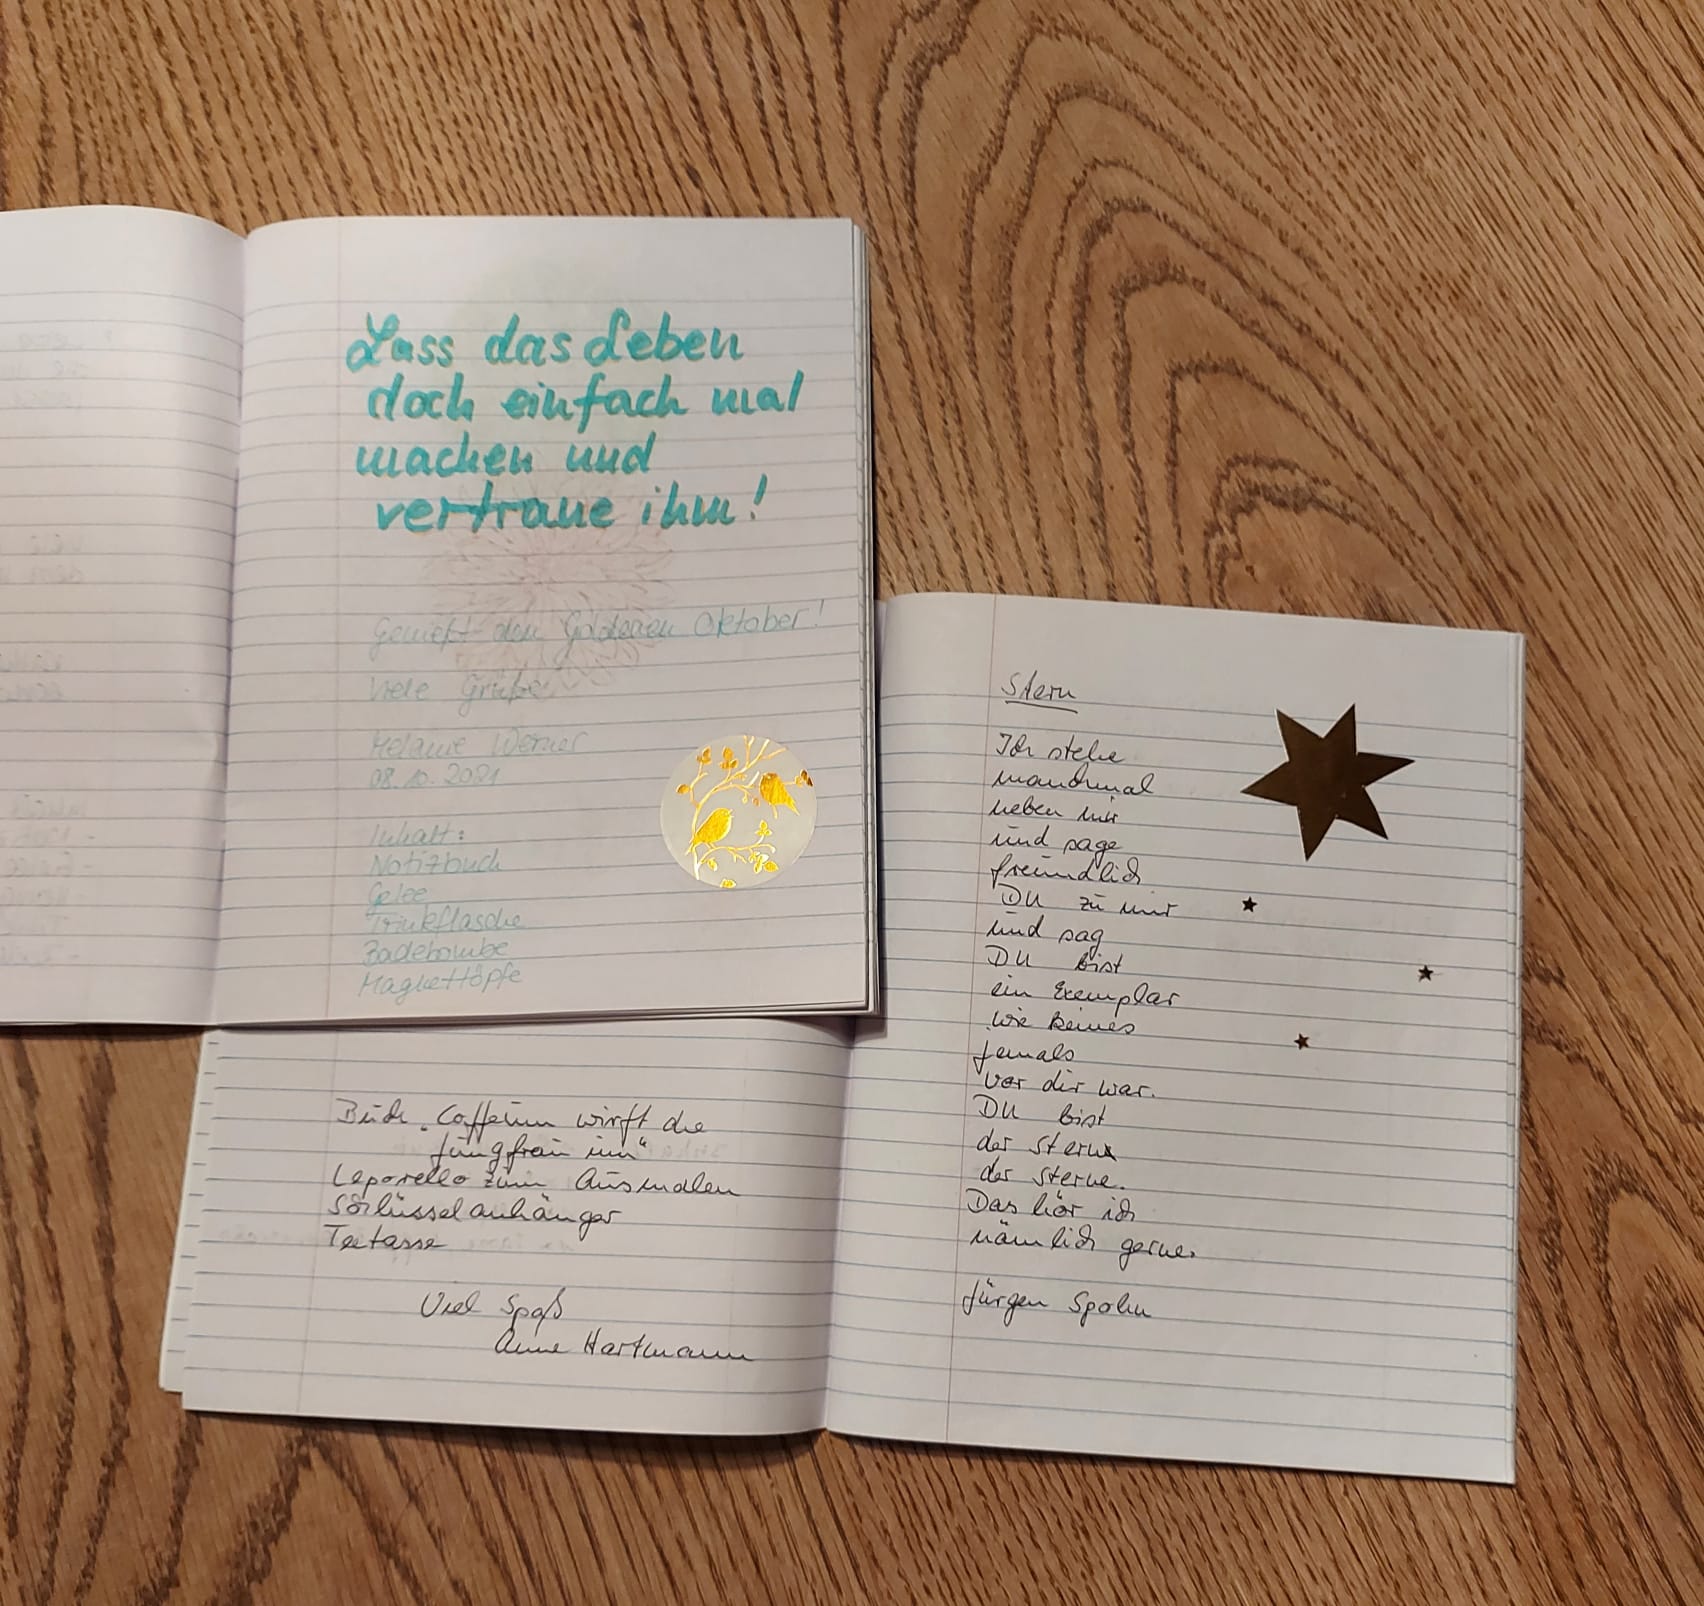 Lass das Leben
doch einfach mal
machen und
vertraue ihm!
Genießt den Goldenen Oktober!
Viele Grüße
Melanie Werner
08.10.2021
Inhalt:
Notizbuch
Gelee
Trinkflasche
Badebombe
Magnettöpfe
Buch „Coffeinum wirft die
Jungfrau um“
Leporello zum Ausmalen
Schlüsselanhänger
Teetasse
Viel Spaß
Anne Hartmann
Stern
Ich stehe
manchmal
neben mir
und sage
freundlich
DU zu mir
und sag
DU bist
ein Exemplar
wie keines
jemals
vor dir war.
DU bist
der Stern
der Sterne.
Das hör ich
nämlich gerne.
Jürgen Spohn